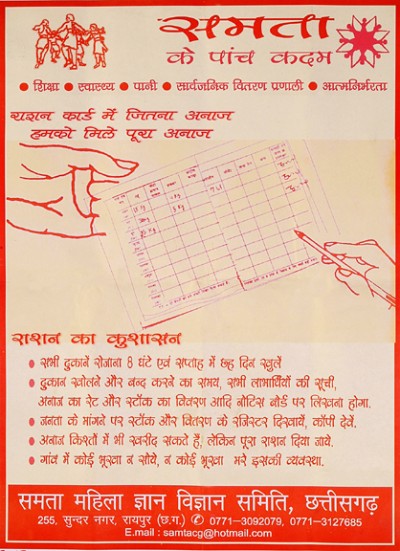 समता
के पांच कदम
• शिक्षा • स्वास्थ्य • पानी • सार्वजनिक वितरण प्रणाली • आत्मनिर्भरता
राशन कार्ड में जितना अनाज
हमको मिले पूरा अनाज
राशन का कुशासन
• सभी दुकानें रोजाना 8 घंटे एवं सप्ताह में छह दिन खुलें
• दुकान खोलने और बन्द करने का समय, सभी लाभार्थियों की सूची,
अनाज का रेट और स्टॉक का विवरण आदि नोटिस बोर्ड पर लिखना होगा.
• जनता के मांगने पर स्टॉक और वितरण के रजिस्टर दिखायें, कॉपी देवें.
• अनाज किश्तों में भी खरीद सकते हैं, लेकिन पूरा राशन दिया जाये.
• गांव में कोई भूखा न सोये, न कोई भूखा मरे इसकी व्यवस्था.
समता महिला ज्ञान विज्ञान समिति, छत्तीसगढ़
255, सुन्दर नगर, रायपुर (छ.ग.) ✆ 0771-3092079, 0771-3127685
E.mail : samtacg@hotmail.com